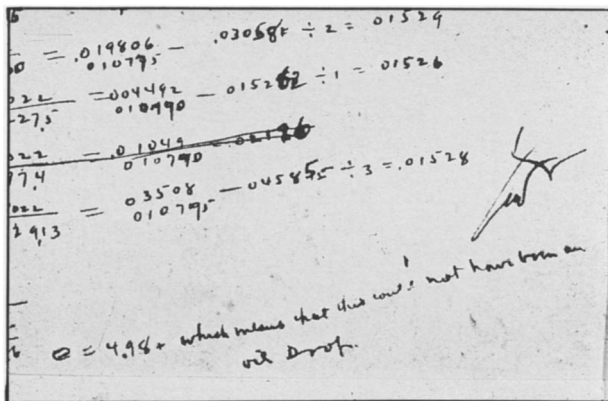 = .019806 / .010795 — .03058 ÷ 2 = .01529
022 / 27.5 = .004492 / .010790 — .01528 ÷ 1 = .01526
022 / 77.4 = .01049 / .010790
022 / 2913 = .03508 / .010795 — .045855 ÷ 3 = .01528
e = 4.98+ which means that this could not have been an
oil Drop.